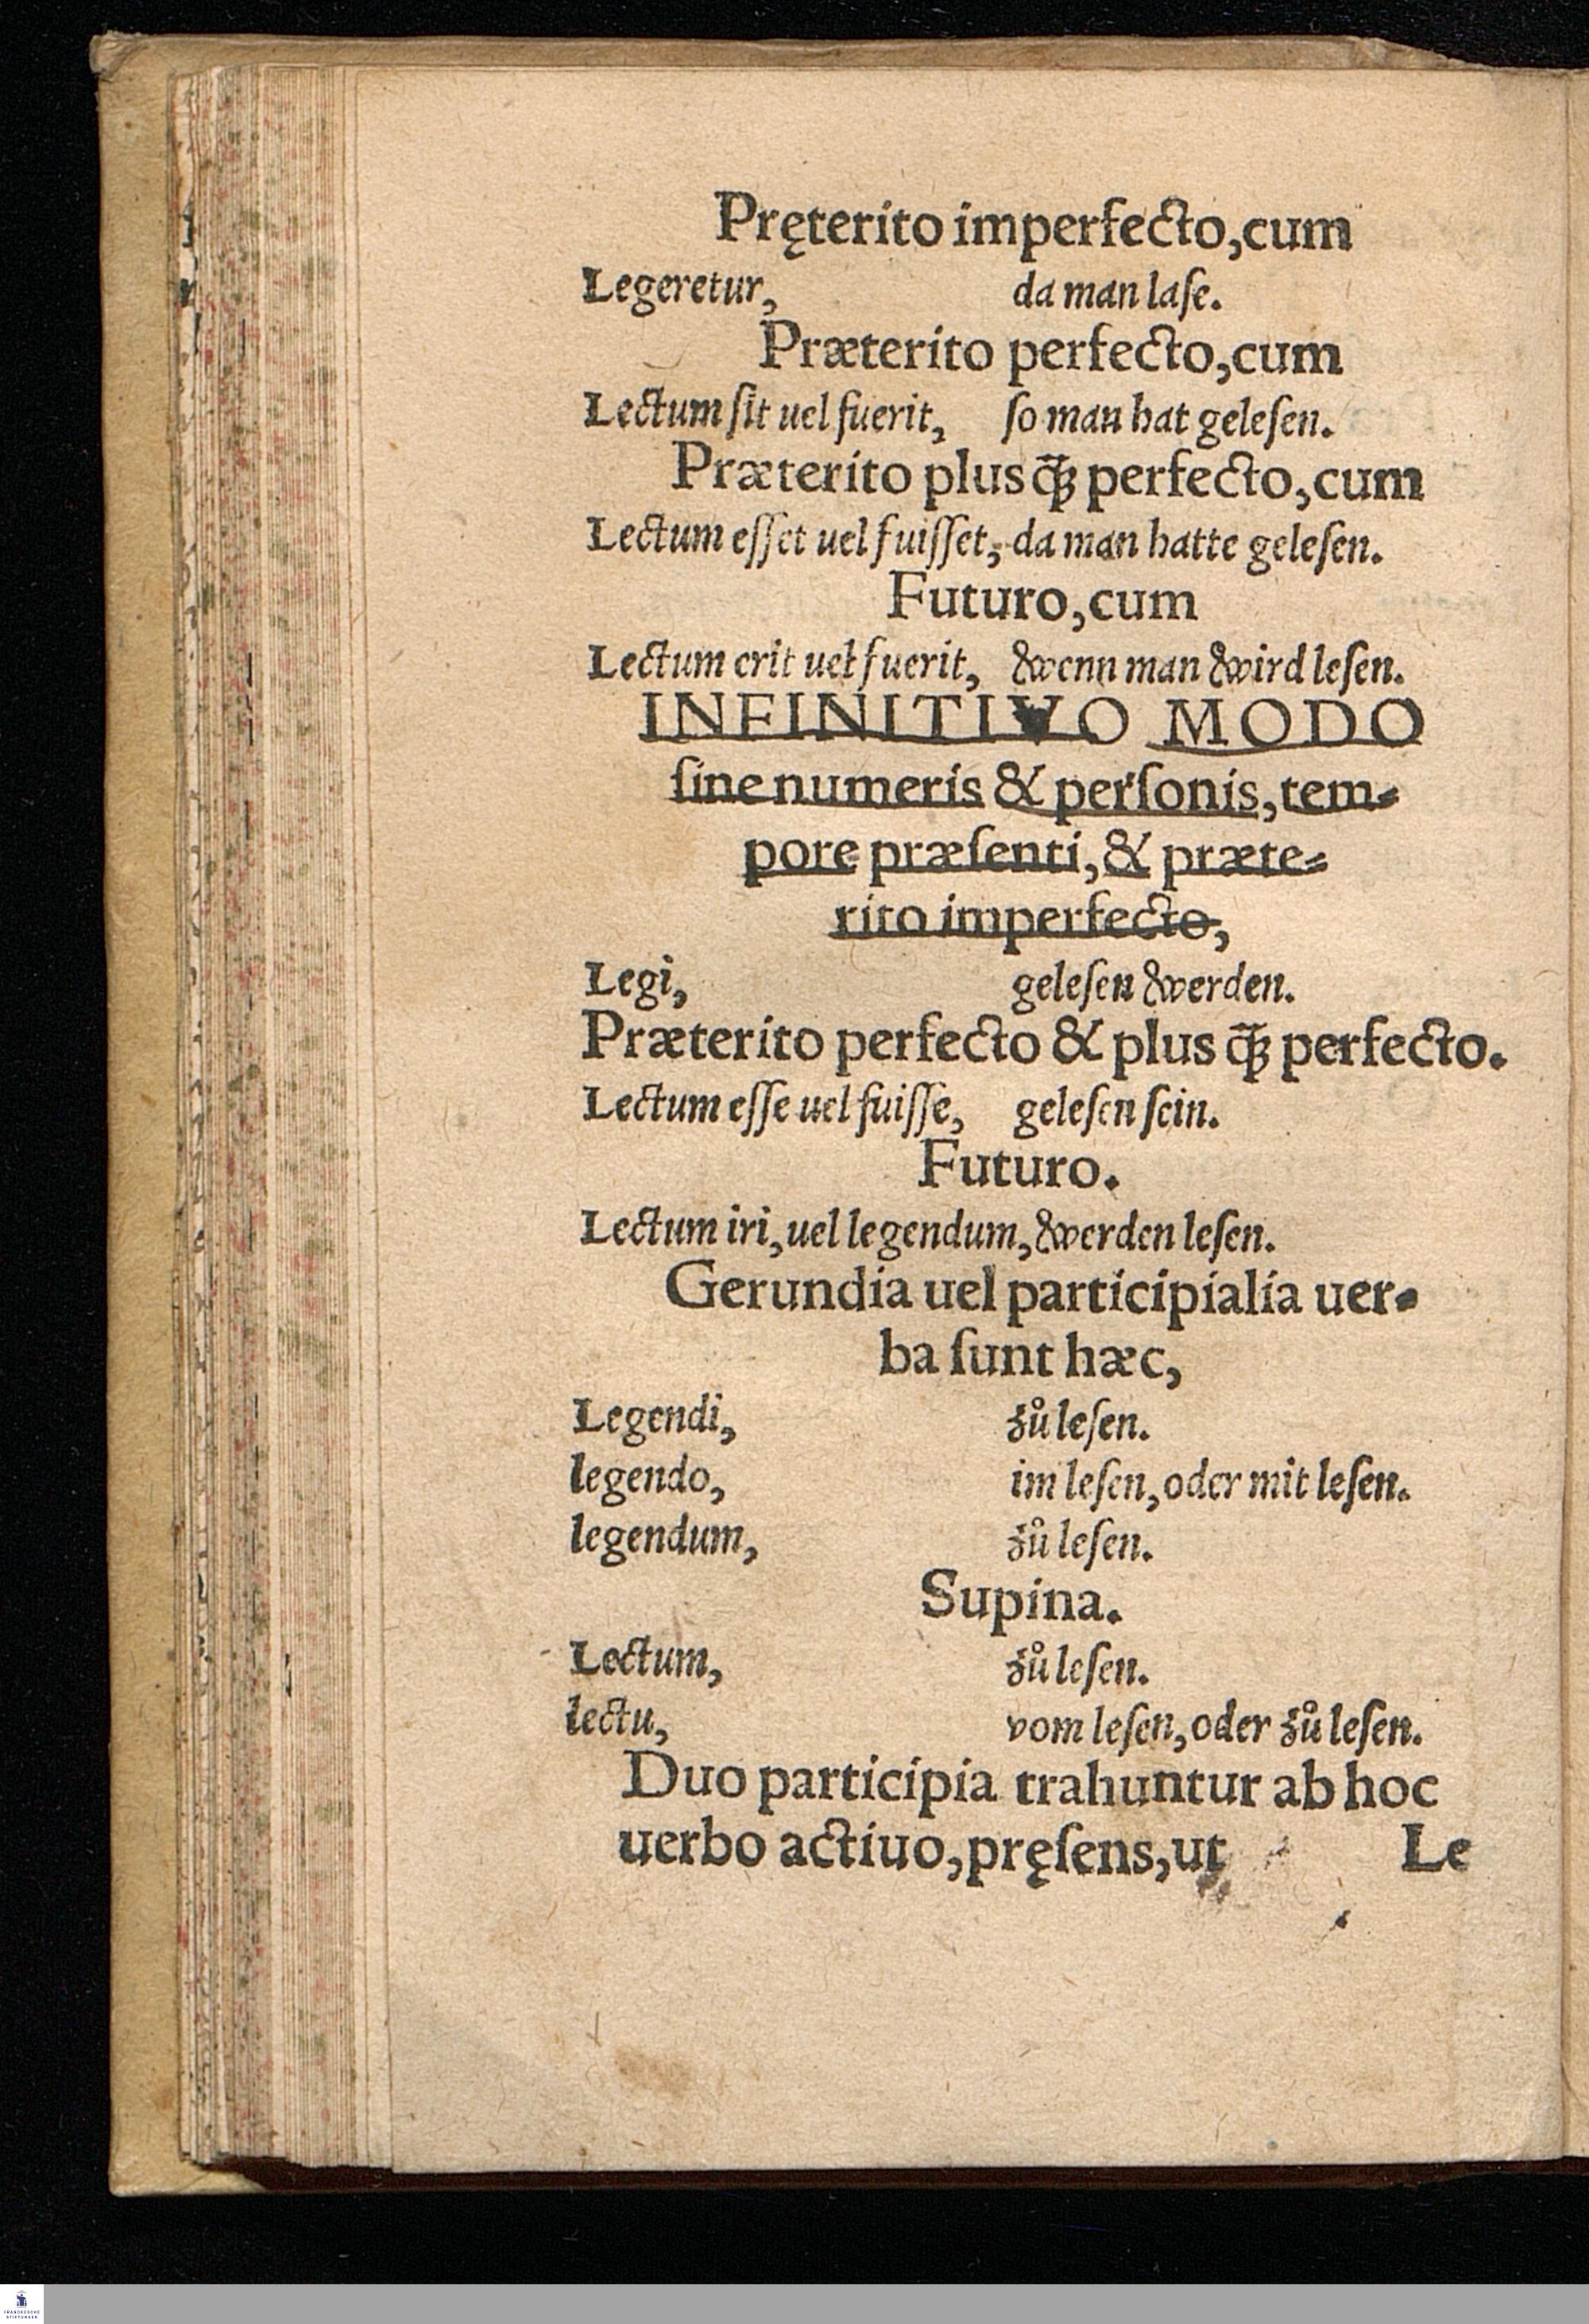 Pręterito imperfecto,cum
Legeretur, da man laſe.
Præterito perfecto,cum
Lectum ſit uel fuerit, ſo man hat geleſen.
Præterito plusq̃ꝫ perfecto,cum
Lectum eſſet uel fuiſſet, da man hatte geleſen.
Futuro,cum
Lectum erit uel fuerit, wenn man wird leſen.
INFINITIVO MODO
ſine numeris & perſonis,tem⸗
pore præſenti,& præte⸗
rito imperfecto,
Legi, geleſen werden.
Præterito perfecto & plus q̃ꝫ perfecto.
Lectum eſſe uel fuiſſe, geleſen ſein.
Futuro.
Lectum iri,uel legendum,werden leſen.
Gerundia uel participialia uer⸗
ba ſunt hæc,
Legendi, zů leſen.
legendo, im leſen,oder mit leſen.
legendum, zů leſen.
Supina.
Lectum, zů leſen.
lectu, vom leſen,oder zů leſen.
Duo participia trahuntur ab hoc
uerbo actiuo,pręſens,ut Le
FRANCKESCHE
STIFTUNGEN